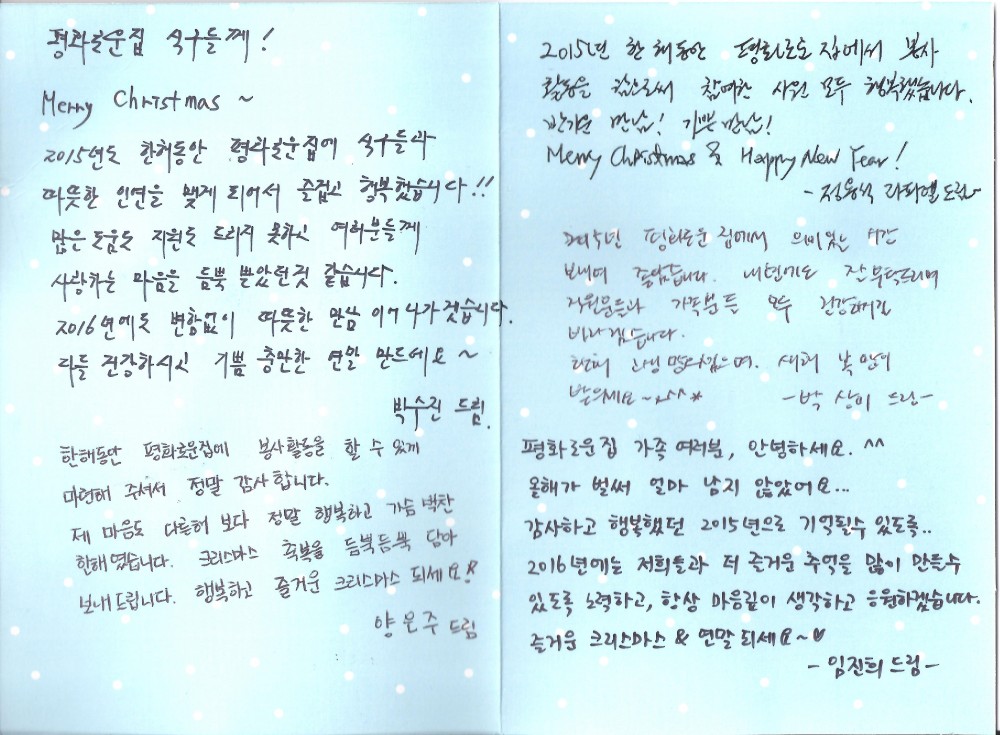 평화로운집 식구들께!
Merry Christmas ~
2015년도 한해동안 평화로운집에 식구들과
따뜻한 인연을 맺게 되어서 즐겁고 행복했습니다!!
많은 도움도 지원도 드리지 못하고 여러분들께
사랑하는 마음을 듬뿍 받았던것 같습니다.
2016년에도 변함없이 따뜻한 만남 이어나가겠습니다.
다들 건강하시고 기쁨 충만한 연말 만드세요~
박수진 드림.
한해동안 평화로운집에 봉사활동을 할 수 있게
마련해 주셔서 정말 감사합니다.
제 마음도 다른해 보다 정말 행복하고 가슴 벅찬
한해 였습니다. 크리스마스 축복을 듬뿍듬뿍 담아
보내드립니다. 행복하고 즐거운 크리스마스 되세요!!
양은주 드림
2015년 한 해동안 평화로운 집에서 봉사
활동을 함으로써 참여한 사원 모두 행복했습니다.
반가운 만남! 기쁜 만남!
Merry Christmas & Happy New Year!
- 정용식 라파엘 드림 -
2015년 평화로운 집에서 의미있는 시간
보내여 좋았습니다. 내년에도 잘 부탁드리며
직원분들과 가족분들 모두 건강하시길
바라겠습니다.
한해 고생 많으셨으며, 새해 복 많이
받으세요~ ^^*
-박 상미 드림-
평화로운집 가족 여러분, 안녕하세요. ^^
올해가 벌써 얼마 남지 않았어요...
감사하고 행복했던 2015년으로 기억될수 있도록..
2016년에는 저희들과 더 즐거운 추억을 많이 만들수
있도록 노력하고, 항상 마음깊이 생각하고 응원하겠습니다.
즐거운 크리스마스 & 연말 되세요~♥
- 임진희 드림 -